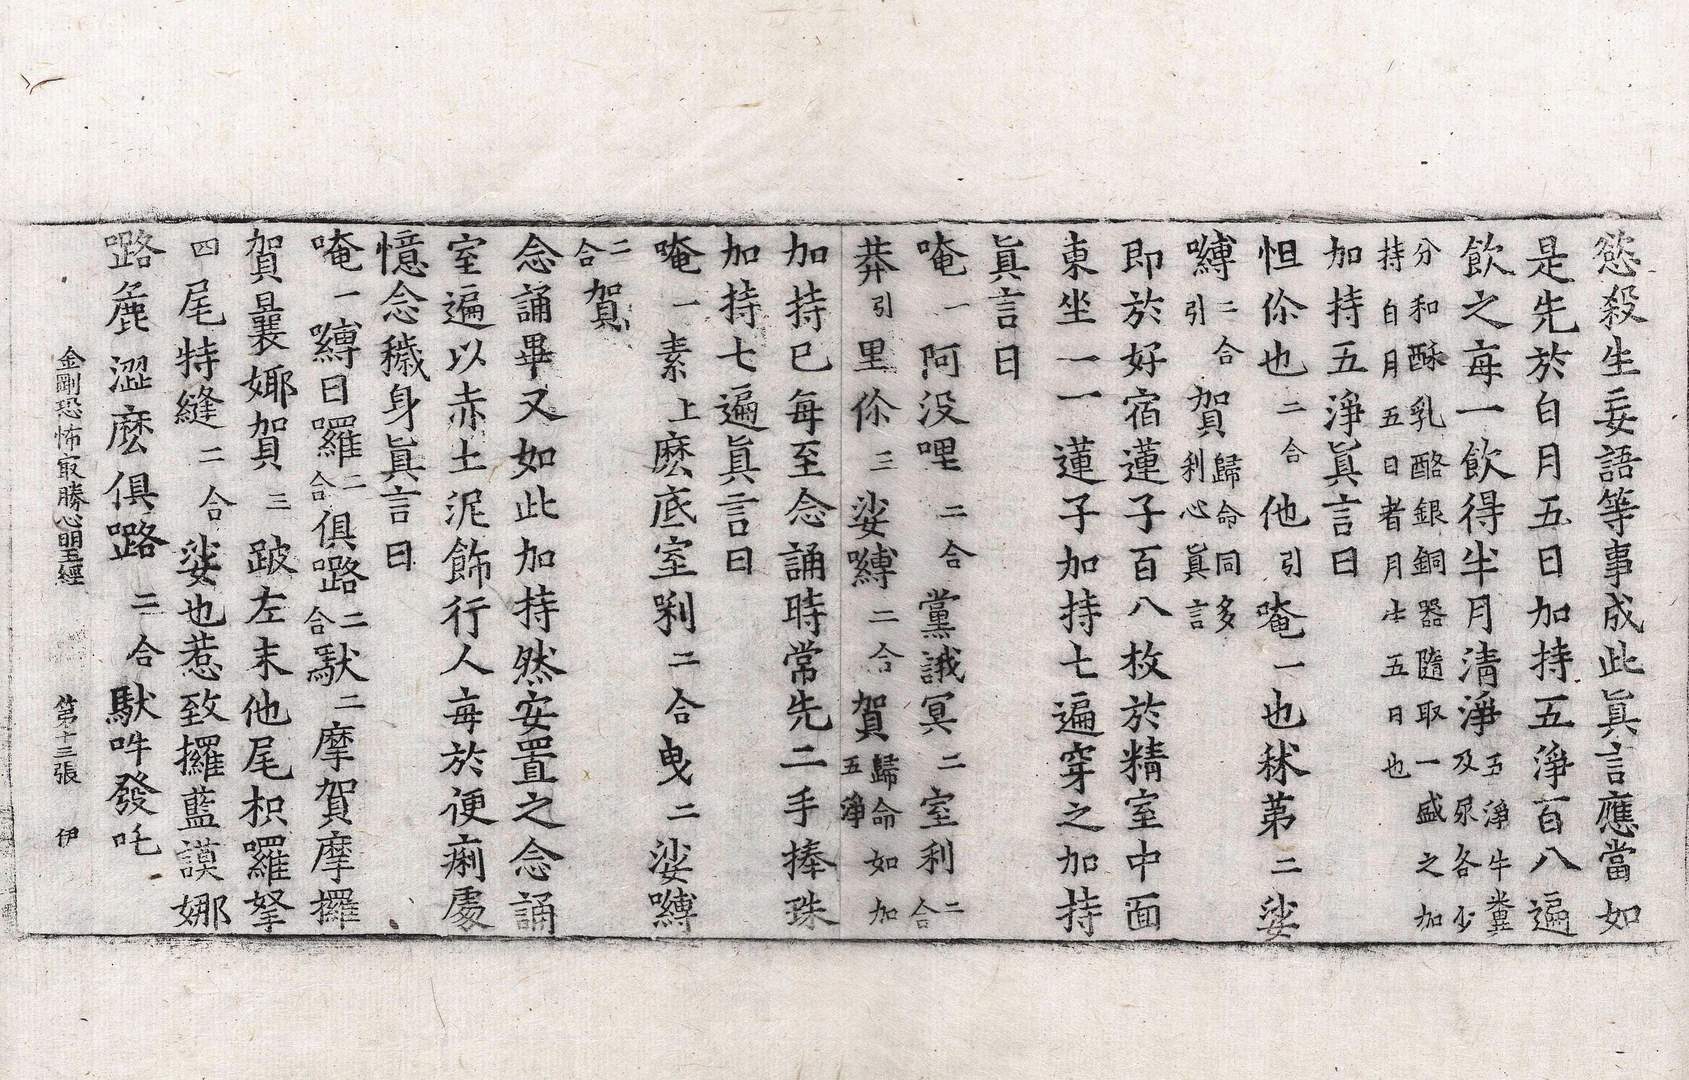 慾殺生妄語等事成此眞言應當如
是先於白月五日加持五淨百八遍
飮之每一飮得半月淸淨五淨牛糞及尿各少
分和酥乳酪銀銅器隨取一盛之加持白月五日者月生五日也
加持五淨眞言曰
怛你也二合他引唵一也秫第二娑
嚩二合引賀歸命同多利心眞言
即於好宿蓮子百八枚於精室中面
東坐一一蓮子加持七遍穿之加持
眞言曰
唵一阿没哩二合黨誐冥二室利二合
莽引里你三娑嚩二合賀歸命如加五淨
加持已每至念誦時常先二手捧珠
加持七遍眞言曰
唵一素上麽底室唎二合曳二娑嚩
二合賀
念誦畢又如此加持然安置之念誦
室遍以赤土泥飾行人每於便痢處
憶念穢身眞言曰
唵一嚩日囉二合俱嚕二合馱二摩賀摩攞
賀曩娜賀三跛左末他尾枳囉拏
四尾特縫二合娑也惹致攞藍謨娜
嚕麁澀麽俱嚕二合馱吽發吒
金剛恐怖最勝心明王經　第十三張　伊